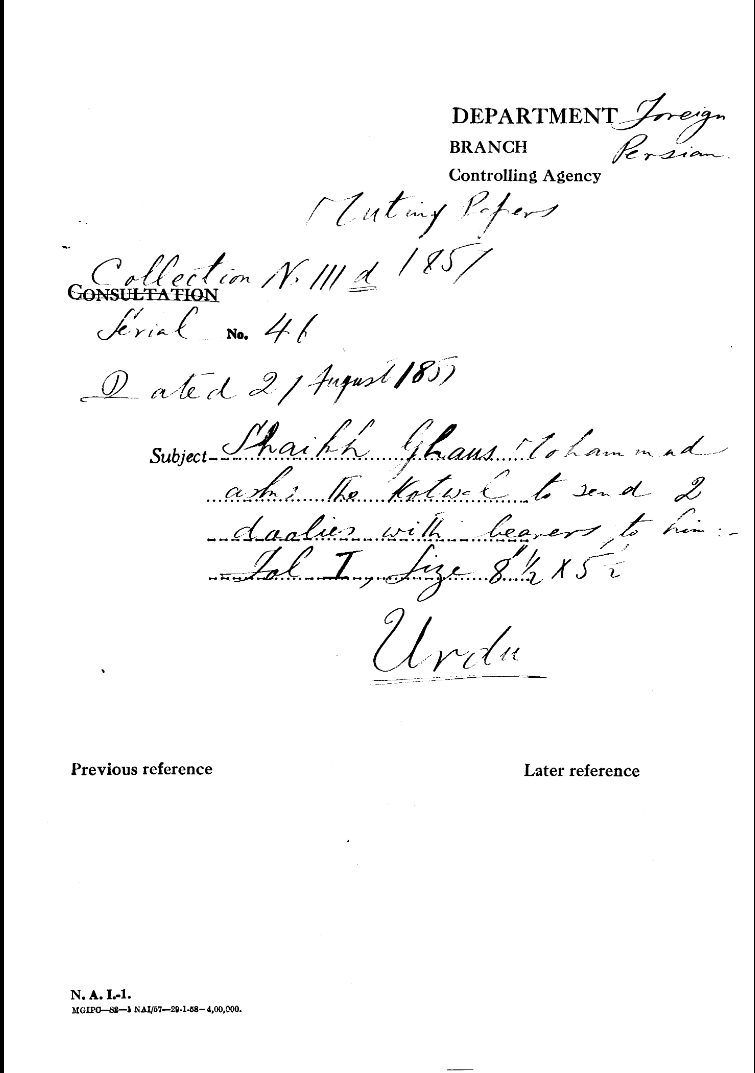 DEPARTMENT Foreign
BRANCH Persian.
Controlling Agency
Mutiny Papers
Collection N. III d 1857
CONSULTATION
Serial No. 46
Dated 21 August 1857
Subject Shaikh Ghaus Mohammad
asks the Kotwal to send 2
doolies with bearers, to him:-
Fol I, Size 8½ X 5½
Urdu
Previous reference Later reference
N. A. I.-1.
MGIPC—S2—1 NAI/57—29-1-58—4,00,000.